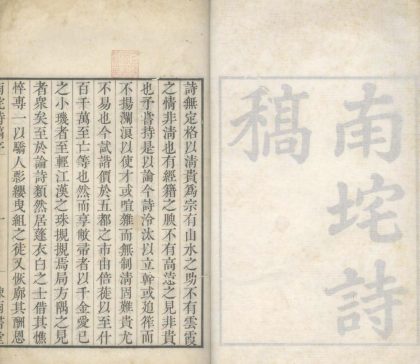 南垞詩
稿
詩無定格以清貴爲宗有山水之助不有雲霞
之情非清也有經籍之腴不有高之見非貴
也予嘗持是以論今詩汾汰以立幹或迫筰而
不揚瀾浪以使才或嘽雜而無制清固難貴尤
不易也今試諧價於五都之市由倍蓰以至什
百千萬至亡等也然而享敝帚者以千金愛已
之小璣者至輕江漢之珠規規焉局方隅之見
者衆矣至於論詩頹然居蓬衣白之士借其憔
悴專一以驕人影纓曳組之徒又恢廓其酬恩
南垞詩稿序
一